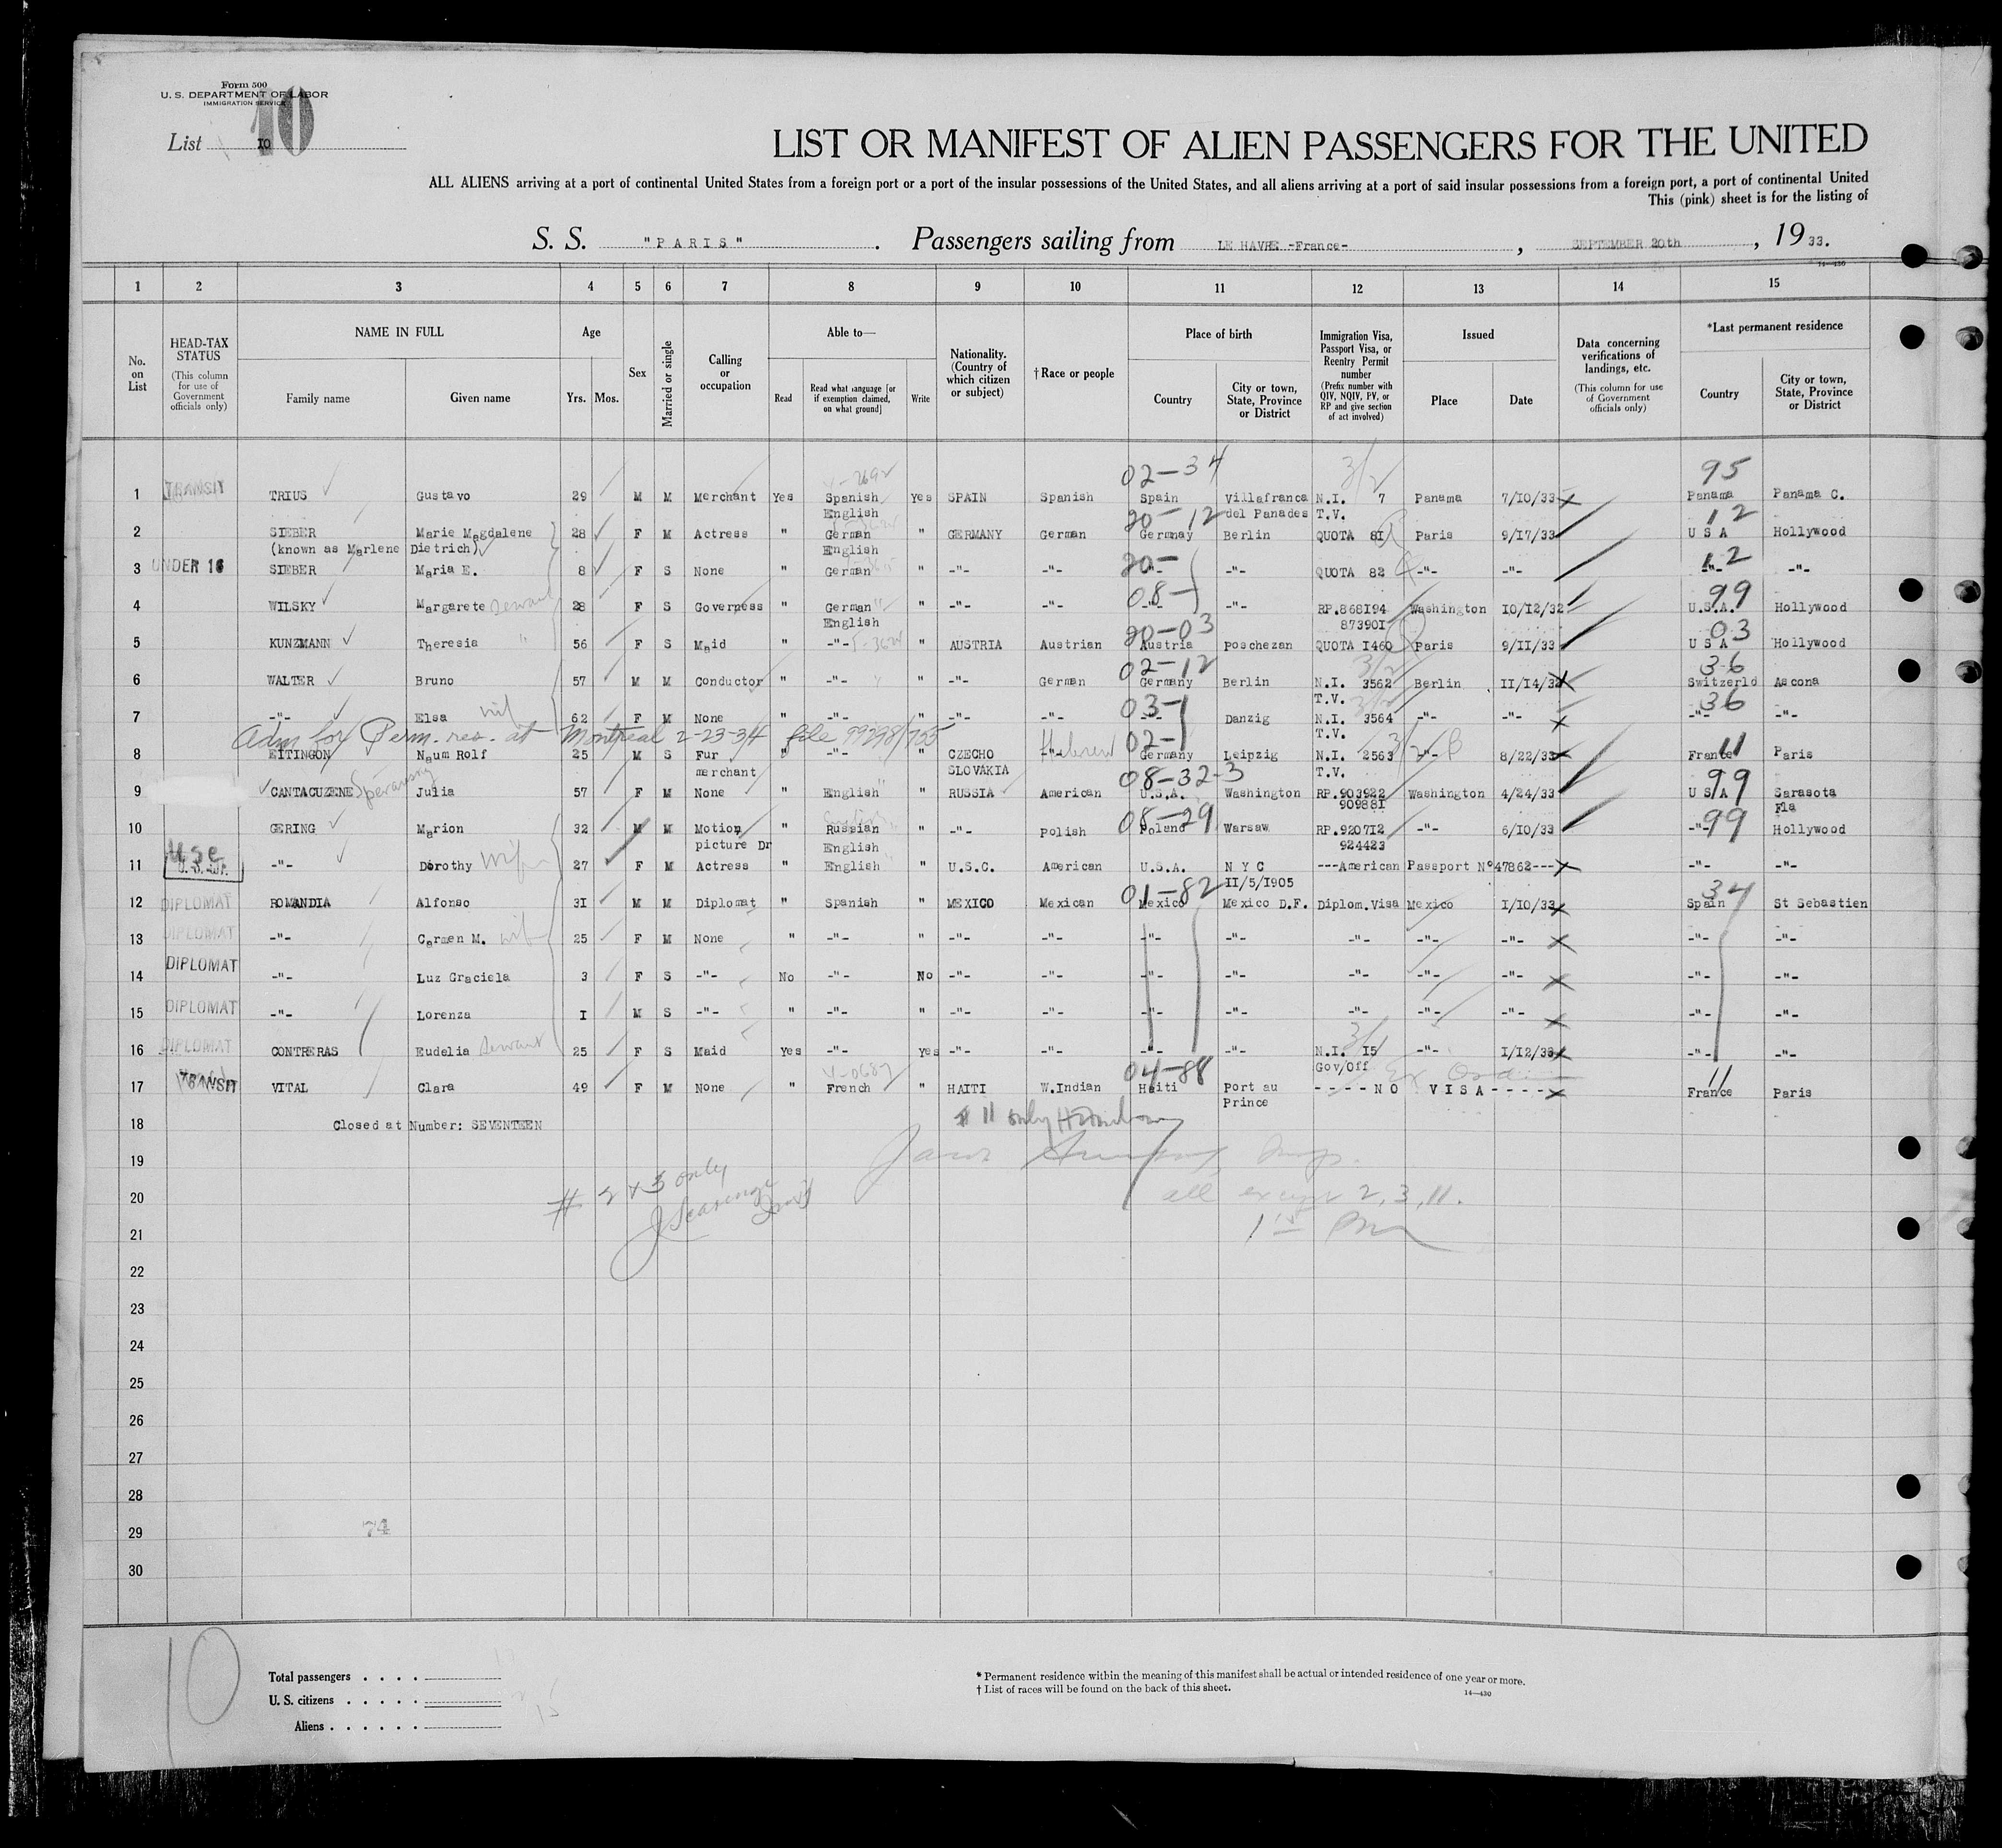 Form 500
U. S. DEPARTMENT OF LABOR
IMMIGRATION SERVICE
List 10 10
LIST OR MANIFEST OF ALIEN PASSENGERS FOR THE UNITED
ALL ALIENS arriving at a port of continental United States from a foreign port or a port of the insular possessions of the United States, and all aliens arriving at a port of said insular possessions from a foreign port, a port of continental United
This (pink) sheet is for the listing of
S. S. "PARIS" . Passengers sailing from LE HAVRE -France- , SEPTEMBER 20th , 19 33.
14—430
1 2 3 4 5 6 7 8 9 10 11 12 13 14 15
No. on List
HEAD-TAX STATUS (This column for use of Government officials only)
NAME IN FULL
Family name Given name
Age
Yrs. Mos.
Sex
Married or single
Calling or occupation
Able to—
Read
Read what language [or if exemption claimed, on what ground]
Write
Nationality. (Country of which citizen or subject)
†Race or people
Place of birth
Country
City or town, State, Province or District
Immigration Visa, Passport Visa, or Reentry Permit number (Prefix number with QIV, NQIV, PV, or RP and give section of act involved)
Issued
Place Date
Data concerning verifications of landings, etc. (This column for use of Government officials only)
*Last permanent residence
Country
City or town, State, Province or District
02-34 3/2 95
1 TRANSIT TRIUS Gustavo 29 M M Merchant Yes Spanish Yes SPAIN Spanish Spain Villafranca N.I. 7 Panama 7/10/33 Panama Panama C.
English del Panades T.V.
20-12 12
2 SIEBER Marie Magdalene 28 F M Actress " German " GERMANY German Germnay Berlin QUOTA 81 Paris 9/17/33 U S A Hollywood
(known as Marlene Dietrich) English
20- 12
3 UNDER 16 SIEBER Maria E. 8 F S None " German " -"- -"- -"- -"- QUOTA 82 -"- -"- -"- -"-
08- 99
4 WILSKY Margarete Servant 28 F S Governess " German " -"- -"- -"- -"- RP.868194 Washington 10/12/32 U.S.A. Hollywood
English 873901
20-03 03
5 KUNZMANN Theresia " 56 F S Maid " -"- " AUSTRIA Austrian Austria Poschezan QUOTA 1460 Paris 9/11/33 U S A Hollywood
02-12 3/2 36
6 WALTER Bruno 57 M M Conductor " -"- " -"- German Germany Berlin N.I. 3562 Berlin 11/14/32 Switzerld Ascona
T.V.
03- 3/2 36
7 -"- Elsa wife 62 F M None " -"- " -"- -"- -"- Danzig N.I. 3564 -"- -"- -"- -"-
T.V.
Adm for Perm. res. at Montreal 2-23-34 file 99298/755
02- 11
8 EITINGON Naum Rolf 25 M S Fur " -"- " CZECHO -"- Hebrew Germany Leipzig N.I. 2563 -"- 8/22/33 France Paris
merchant SLOVAKIA T.V.
08-32-3 99
9 CANTACUZENE Speransky Julia 57 F M None " English " RUSSIA American U.S.A. Washington RP.903922 Washington 4/24/33 U S A Sarasota
909881 Fla
08-29 99
10 GERING Marion 32 M M Motion " Russian " -"- Polish Poland Warsaw RP.920712 -"- 6/10/33 -"- Hollywood
picture Dr English 924423
USC
11 -"- Dorothy wife 27 F M Actress " English " U.S.C. American U.S.A. N Y C ---American Passport N°47862--- -"- -"-
11/5/1905
01-82 34
12 DIPLOMAT ROMANDIA Alfonso 31 M M Diplomat " Spanish " MEXICO Mexican Mexico Mexico D.F. Diplom.Visa Mexico 1/10/33 Spain St Sebastien
13 DIPLOMAT -"- Carmen M. wife 25 F M None " -"- " -"- -"- -"- -"- -"- -"- -"- -"- -"-
14 DIPLOMAT -"- Luz Graciela 3 F S -"- No -"- No -"- -"- -"- -"- -"- -"- -"- -"- -"-
15 DIPLOMAT -"- Lorenza 1 M S -"- " -"- " -"- -"- -"- -"- -"- -"- -"- -"- -"-
3/1
16 DIPLOMAT CONTRERAS Eudelia Servant 25 F S Maid Yes -"- yes -"- -"- -"- -"- N.I. 15 -"- 1/12/33 -"- -"-
Gov/Off
04-88 11
17 TRANSIT VITAL Clara 49 F M None " French " HAITI W.Indian Haiti Port au ----NO VISA---- France Paris
Prince
18 Closed at Number: SEVENTEEN
# 11 only
19
# 2 & 3 only
20 all except 2, 3, 11.
21
22
23
24
25
26
27
28
29 74
30
10
Total passengers . . . .
U. S. citizens . . . . .
Aliens . . . . . .
* Permanent residence within the meaning of this manifest shall be actual or intended residence of one year or more.
† List of races will be found on the back of this sheet.
14—430